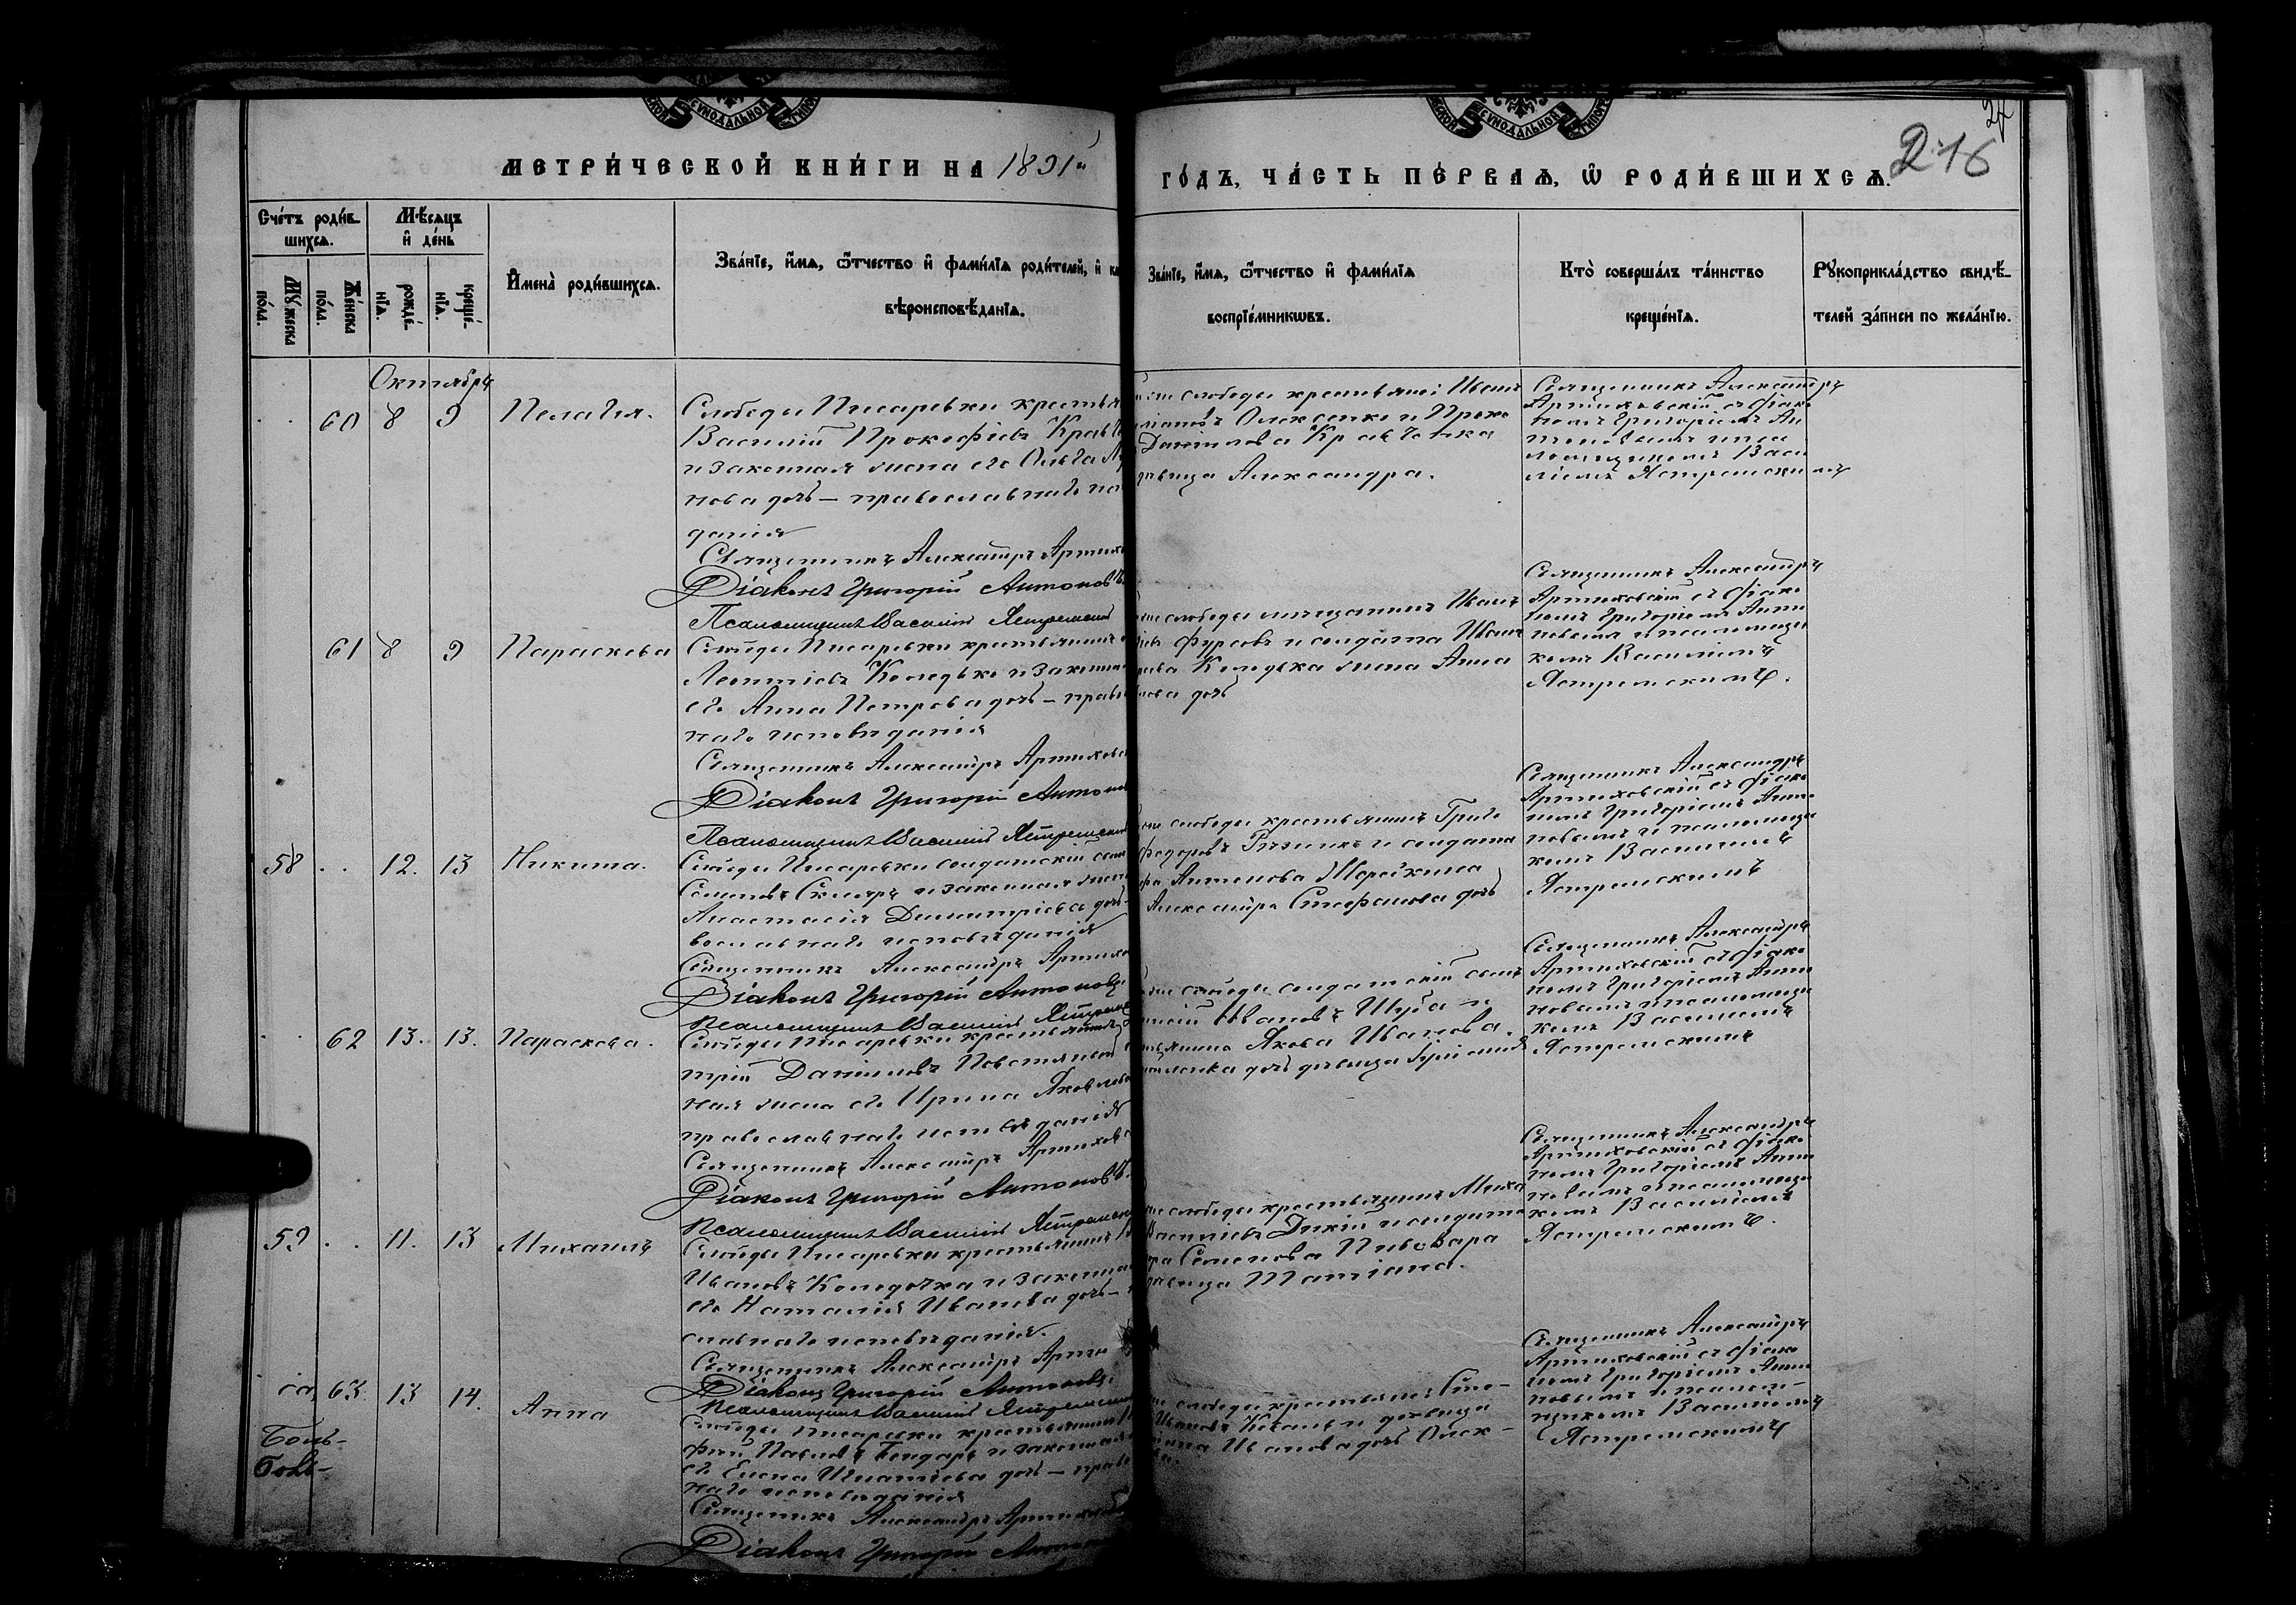 МЕТРИ́ЧЕСКОЙ КНИ́ГИ НА 1891й
ГО́ДЪ, ЧА́СТЬ ПЕ́РВАѦ, Ѡ҆ РОДИ́ВШИХСѦ.
216
Сче́тъ роди́в-
шихсѧ.
Мѣ́сѧцъ
и҆ де́нь
Мꙋ́жеска
по́ла.
Же́нска
по́ла.
рожде́-
нїѧ.
креще́-
нїѧ.
И҆мена̀ роди́вшихсѧ.
Зва́нїе, и҆́мѧ, ѻ҆́тчество и҆ фами́лїѧ роди́телей, и҆ ка
вѣроисповѣ́данїѧ.
Зва́нїе, и҆́мѧ, ѻ҆́тчество и҆ фами́лїѧ
воспрїе́мникѡвъ.
Кто̀ соверша́лъ та́инство
креще́нїѧ.
Рꙋкоприкла́дство свидѣ́-
телей за́писи по жела́нїю.
Октября
60 8 9 Пелагія.
Слободы Писаревки крестья
Василій Прокофіевъ Кравч
и законная жена его Ольга
нова дочь — православнаго
данія
Священникъ Александръ Артюхо
Діаконъ Григорій Антоновъ.
Псаломщикъ Василій Ястремскій
слободы крестьяне: Иванъ
Олексенко и Проко
Данилова Кравченка
дѣвица Александра.
Священникъ Александръ
Артюховскій съ діако
номъ Григоріемъ Ан
тоновымъ и пса
ломщикомъ Васи
ліемъ Ястремскимъ
61 8 9 Параскева
Слободы Писаревки крестьянинъ
Леонтіевъ Коледка и законная
его Анна Петрова дочь — право
наго исповѣданія
Священникъ Александръ Артюховс
Діаконъ Григорій Антонов
Псаломщикъ Василій Ястремскій
слободы мѣщанинъ Иванъ
Фурсовъ и солдата Иван
Коледка жена Анна
нова дочь
Священникъ Александръ
Артюховскій съ діако
номъ Григоріемъ Анто
новымъ и псаломщи
комъ Василіемъ
Ястремскимъ.
58 . . 12. 13 Никита.
Слободы Писаревки солдатскій сынъ
Семенъ Скляръ и законная жена
Анастасія Димитріева дочь —
вославнаго исповѣданія
Священникъ Александръ Артюхо
Діаконъ Григорій Антоновъ
Псаломщикъ Василій Ястремск
слободы крестьянинъ Григо
Федоровъ и солдата
Антонова
Александра Стефанова дочь
Священникъ Александръ
Артюховскій съ діако
номъ Григоріемъ Анто
новымъ и псаломщи
комъ Василіемъ
Ястремскимъ
. . 62 13. 13. Параскева.
Слободы Писаревки крестьянинъ
трій Даниловъ Повстяной
ная жена его Ирина Яковлева
православнаго исповѣданія
Священникъ Александръ Артюховс
Діаконъ Григорій Антоновъ.
Псаломщикъ Василій Ястремск
слободы солдатскій сынъ
Ивановъ Шуба и
Якова Иванова
дочь дѣвица
Священникъ Александръ
Артюховскій съ діако
номъ Григоріемъ Анто
новымъ и псаломщи
комъ Василіемъ
Ястремскимъ
59 . . 11. 13 Михаилъ
Слободы Писаревки крестьянинъ
Ивановъ Коледочка и законная
его Наталія Иванова дочь —
славнаго исповѣданія.
Священникъ Александръ Артю
Діаконъ Григорій Антоновъ.
Псаломщикъ Василій Ястремск
слободы крестьянинъ Миха
Василіевъ Дикій и солдата
Семенова Пивовара
дѣвица Татіана.
Священникъ Александръ
Артюховскій съ діако
номъ Григоріемъ Анто
новымъ и псаломщи
комъ Василіемъ
Ястремскимъ.
63. 13 14. Анна
Слободы Писаревки крестьянинъ
фій Павловъ Бондарь и законная
его Елена Игнатіева дочь — право
наго исповѣданія
Священникъ Александръ Артюховс
Діаконъ Григорій Антон
слободы крестьяне: Сте-
Ивановъ и дѣвица
Иванова дочь Олек-
Священникъ Александръ
Артюховскій съ діако
номъ Григоріемъ Анто
новымъ и псалом-
щикомъ Василіемъ
Ястремскимъ